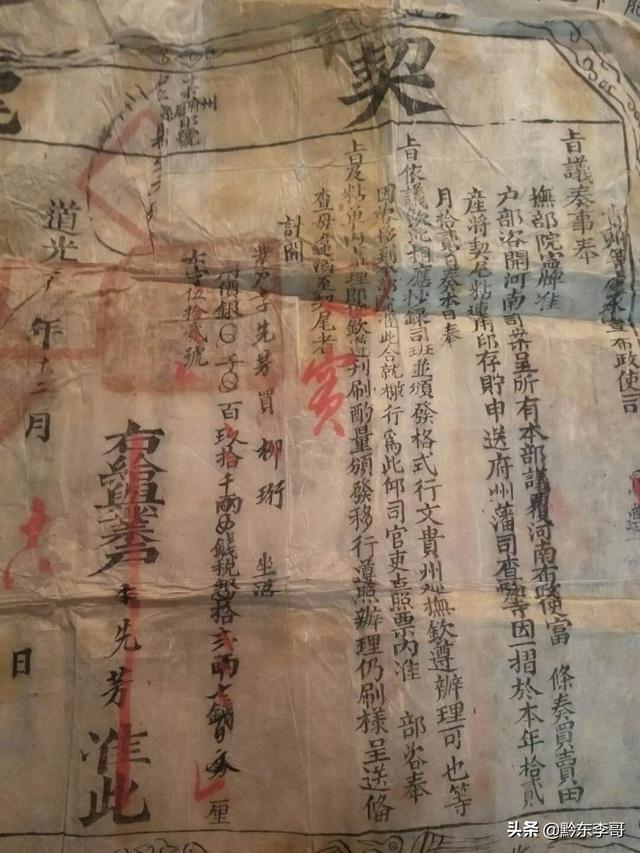 契
貴州等處承宣布政使司
旨議奏事奉
撫部院富牌准
户部咨開河南司案呈所有本部議覆河南布政使富 條奏買賣田
產將契尾粘連用印存貯申送府州藩司查驗等因一摺於本年拾貳
月拾貳日奏本日奉
旨依議欽此相應抄錄司班並頒發格式行文貴州巡撫欽遵辦理可也等
因咨移到本部院准此合就檄行為此仰司官吏查照票內准 部咨奉
旨及粘單內事理即欽遵刊刷酌量頒發移行遵照辦理仍刷樣呈送俻
查毋違須至契尾者
計開
業户李先芳買柳珩 坐落
價銀 千 百玖拾千兩 錢稅 拾貳兩七錢 分 厘
布字伍拾貳號
布給與業户李先芳准此
道光 年十二月
十六
日
實
州
號
头条 @黔东李哥